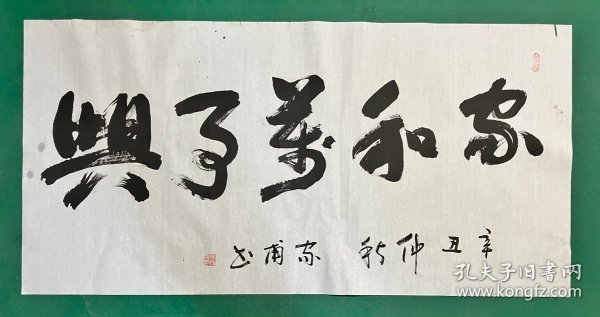 家和萬事興
辛丑仲秋 家甫书
孔夫子旧书网
www.kongfz.com